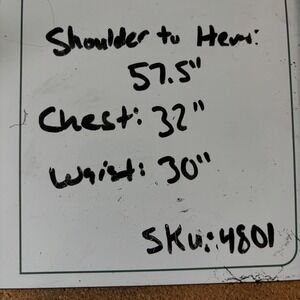 Shoulder to Hem:
57.5"
Chest: 32"
Waist: 30"
SKu: 4801